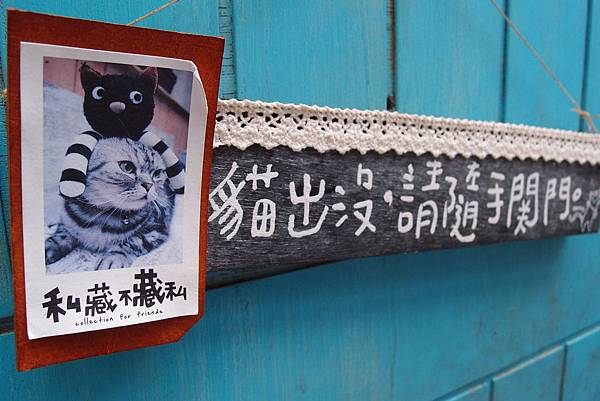 私藏不藏私
collection for friends
貓出沒，請隨手關門。